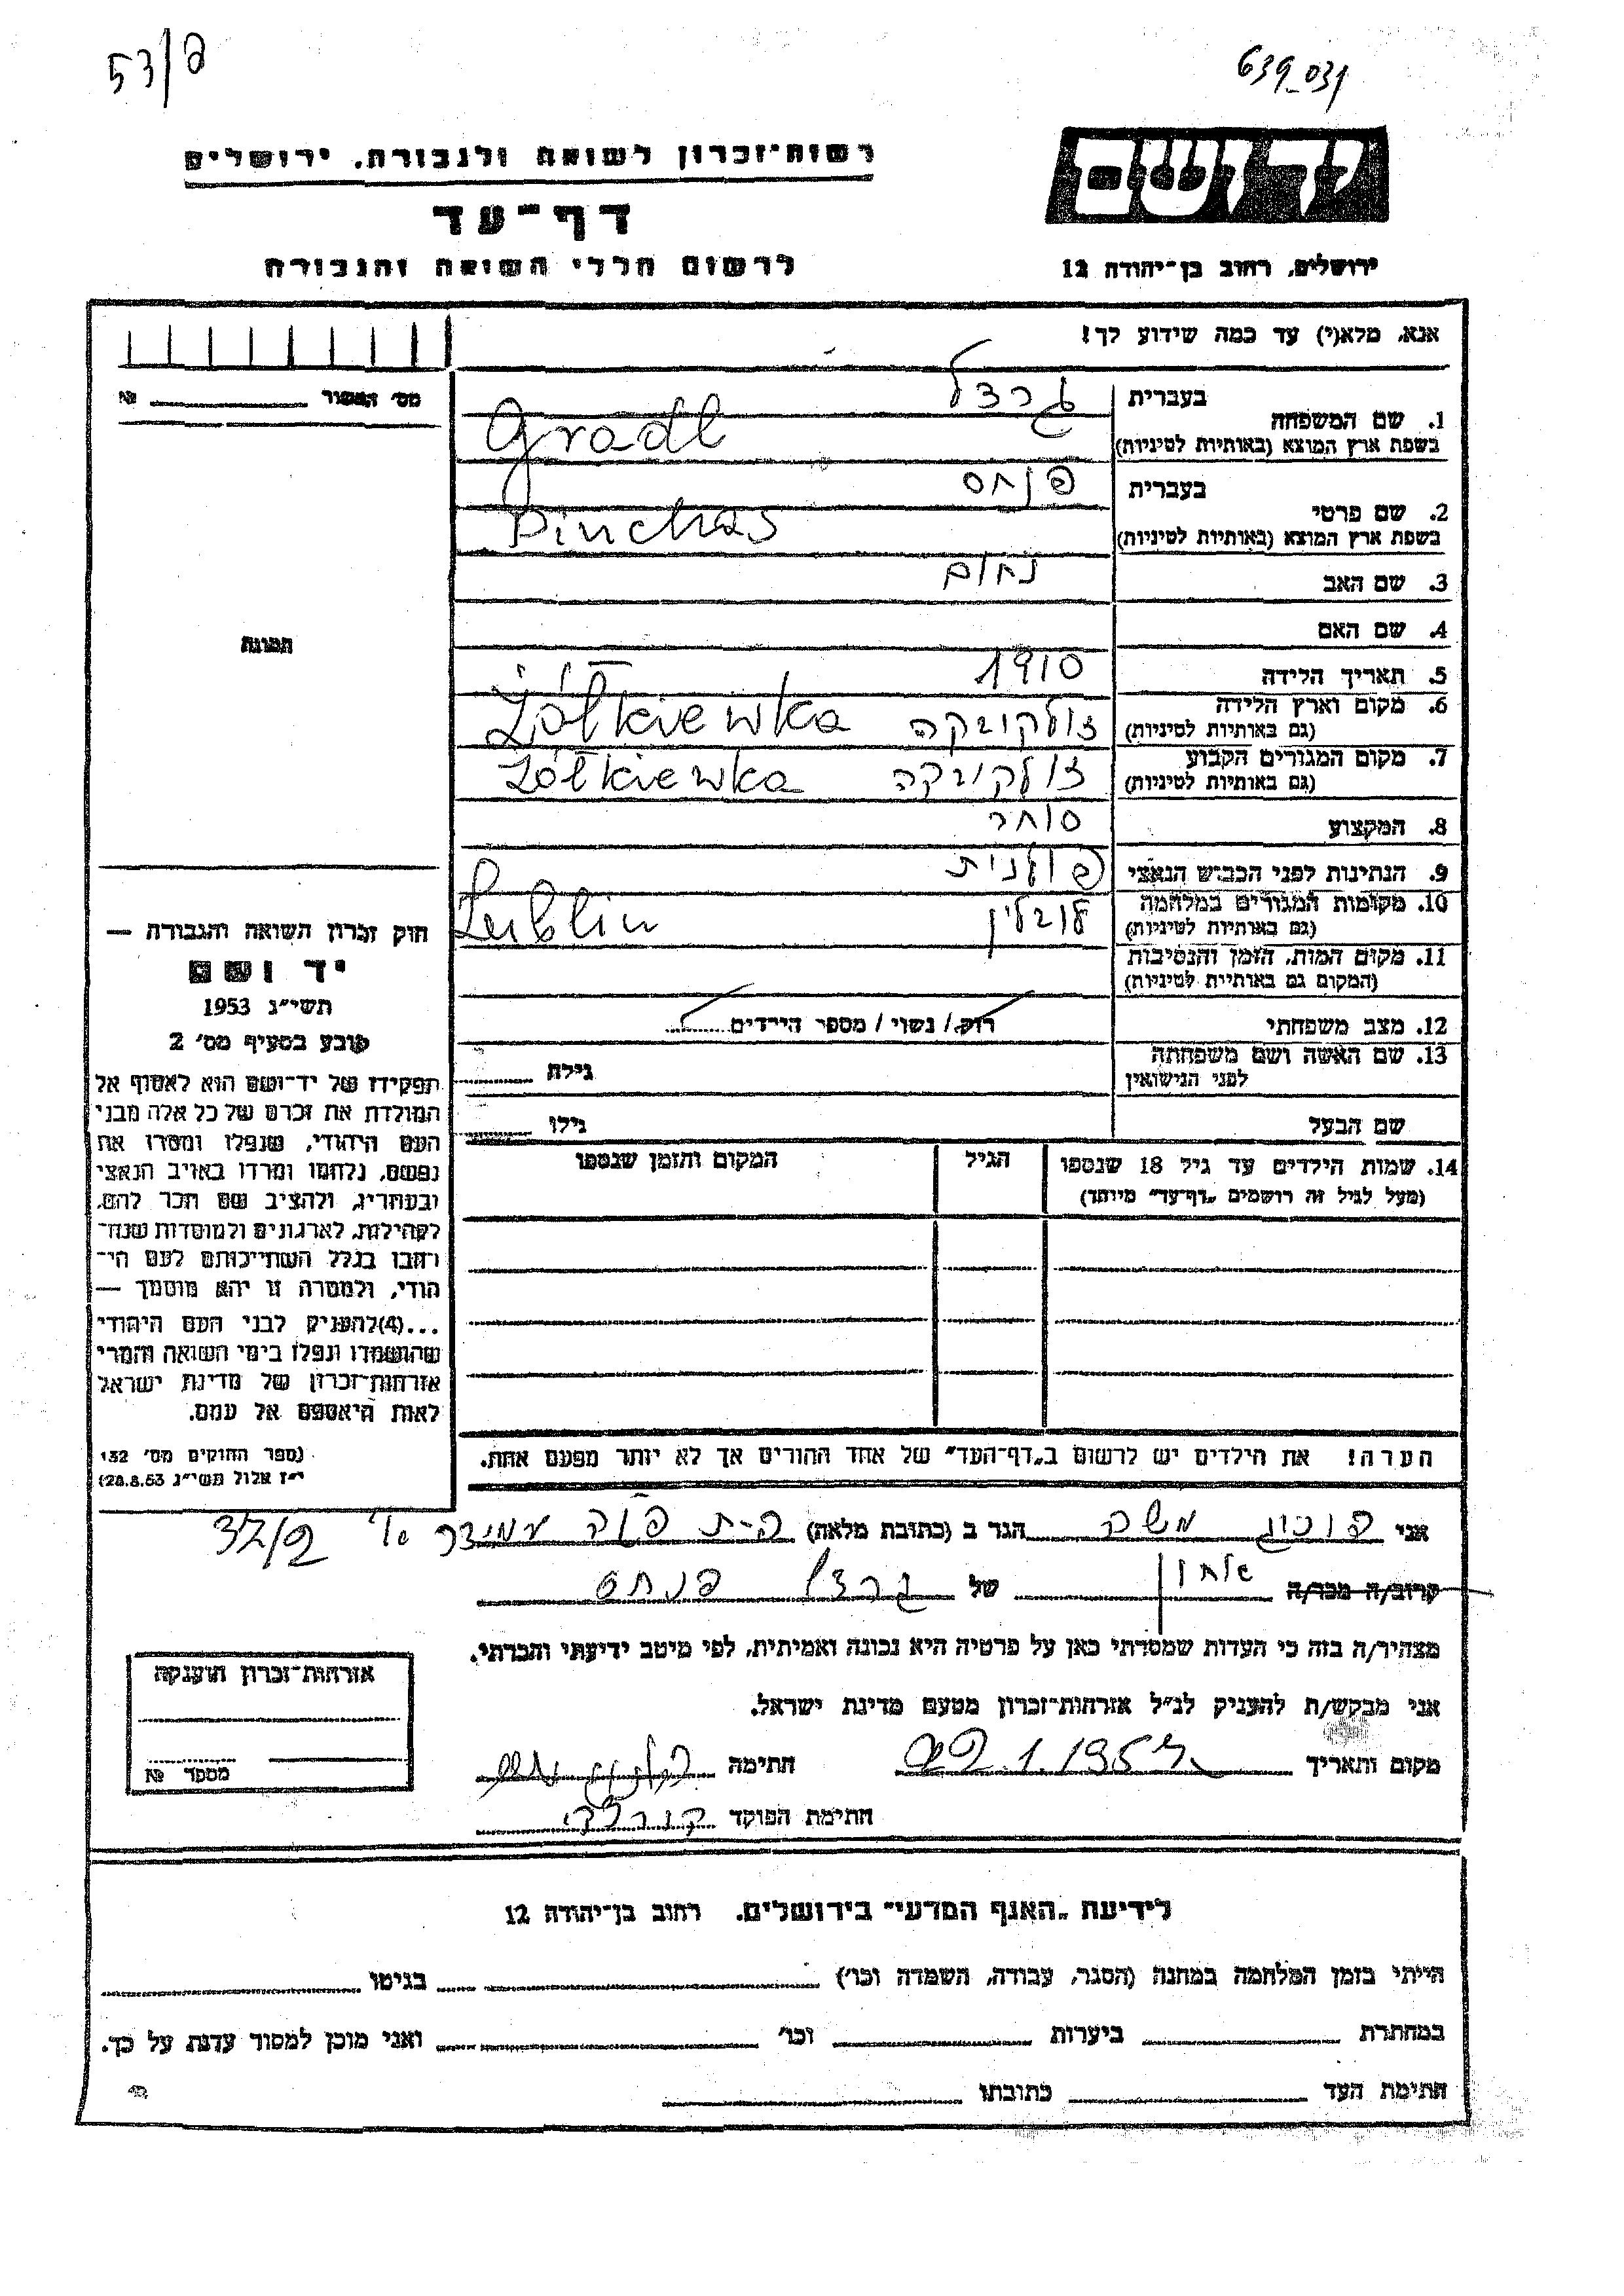 53/8
639_031
רשות-זכרון לשואה ולגבורה, ירושלים
דף-עד
לרשום חללי השואה והגבורה
יד ושם
ירושלים, רחוב בן-יהודה 12
אנא, מלא(י) עד כמה שידוע לך!
מס' המשור №
1. שם המשפחה
בעברית גרדל
בשפת ארץ המוצא (באותיות לטיניות) Gradl
2. שם פרטי
בעברית פנחס
בשפת ארץ המוצא (באותיות לטיניות) Pinchas
3. שם האב נחום
4. שם האם
5. תאריך הלידה 1910
6. מקום וארץ הלידה
(גם באותיות לטיניות) זולקויבקה Żółkiewka
7. מקום המגורים הקבוע
(גם באותיות לטיניות) זולקויבקה Żółkiewka
8. המקצוע סוחר
9. הנתינות לפני הכבוש הנאצי פולנית
10. מקומות המגורים במלחמה
(גם באותיות לטיניות) לובלין Lublin
11. מקום המות, הזמן והנסיבות
(המקום גם באותיות לטיניות)
12. מצב משפחתי רוק / נשוי / מספר הילדים
13. שם האשה ושם משפחתה
לפני הנישואין גילה
שם הבעל גילו
14. שמות הילדים עד גיל 18 שנספו
(מעל לגיל זה רושמים "דף-עד" מיוחד)
הגיל
המקום והזמן שנספו
הערה! את הילדים יש לרשום ב"דף-העד" של אחד ההורים אך לא יותר מפעם אחת.
תמונה
חוק זכרון השואה והגבורה —
יד ושם
תשי"ג 1953
קובע בסעיף מס' 2
תפקידו של יד-ושם הוא לאסוף אל
המולדת את זכרם של כל אלה מבני
העם היהודי, שנפלו ומסרו את
נפשם, נלחמו ומרדו באויב הנאצי
ובעוזריו, ולהציב שם וזכר להם,
לקהילות, לארגונים ולמוסדות שנח-
רבו בגלל השתייכותם לעם הי-
הודי, ולמטרה זו יהא מוסמך —
...(4)להעניק לבני העם היהודי
שהושמדו ונפלו בימי השואה והמרי
אזרחות-זכרון של מדינת ישראל
לאות היאספם אל עמם.
(ספר החוקים מס' 132
י"ז אלול תשי"ג 28.8.53)
אני משה הגר ב (כתובת מלאה) עמידר 37/2
קרוב/ה מכר/ה של גרדל פנחס
מצהיר/ה בזה כי העדות שמסרתי כאן על פרטיה היא נכונה ואמיתית, לפי מיטב ידיעתי והכרתי.
אני מבקש/ת להעניק לנ"ל אזרחות-זכרון מטעם מדינת ישראל.
מקום ותאריך 22.1.1957 חתימה
חתימת הפוקד
אזרחות-זכרון הוענקה
מספר №
לידיעת "האגף המדעי" בירושלים, רחוב בן-יהודה 12
הייתי בזמן המלחמה במחנה (הסגר, עבודה, השמדה וכו') בגיטו
במחתרת ביערות וכו' ואני מוכן למסור עדות על כך.
חתימת העד כתובתו